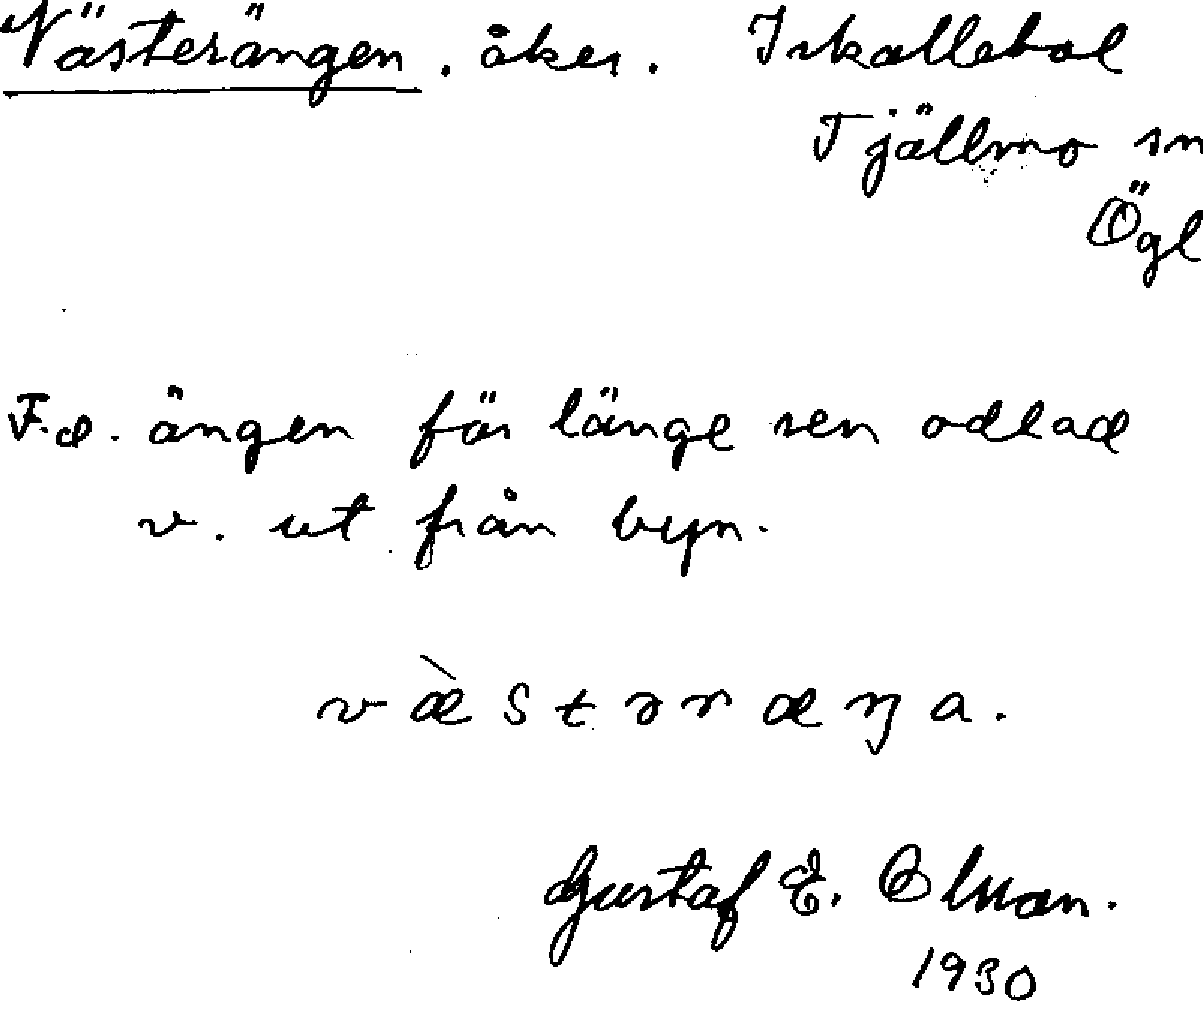 Västerängen. åker. Iskallebol
Tjällmo sn
Ögl
F.d. ängen för länge sen odlad
v. ut från byn.
væ̀stəræŋa.
Gustaf E. Olsson.
1930